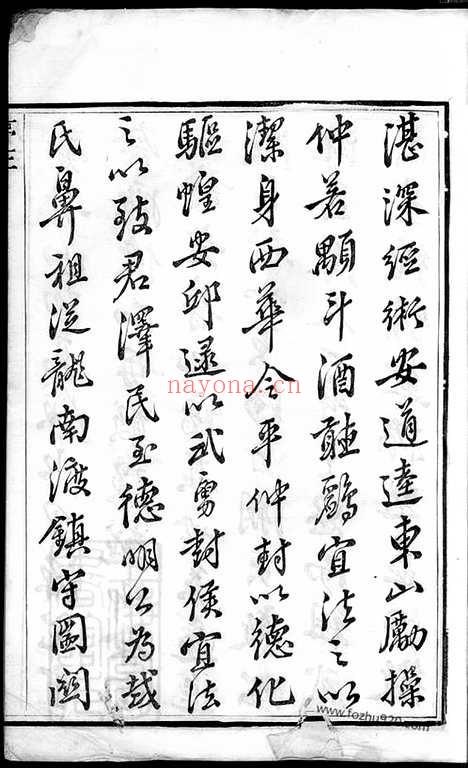 湛深經術安道達東山勵操
仲若顒斗酒聽鸝宜法之以
潔身西華令平仲封以德化
驅蝗安邱逯以武勇封侯宜法
之以致君澤民至德明公為越
氏鼻祖從龍南渡鎮守圖關
nayona.cn
www.fozhu920.com